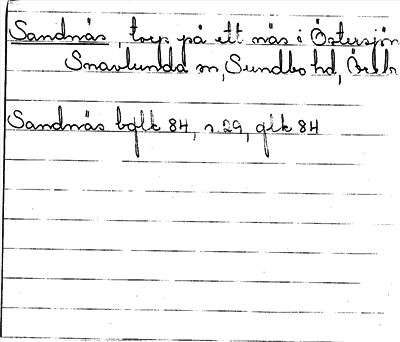 Sandnäs, torp på ett näs i Östersjön
Snavlunda sn, Sundbo hd, Örebr
Sandnäs bglk 84, r. 29, glk 84